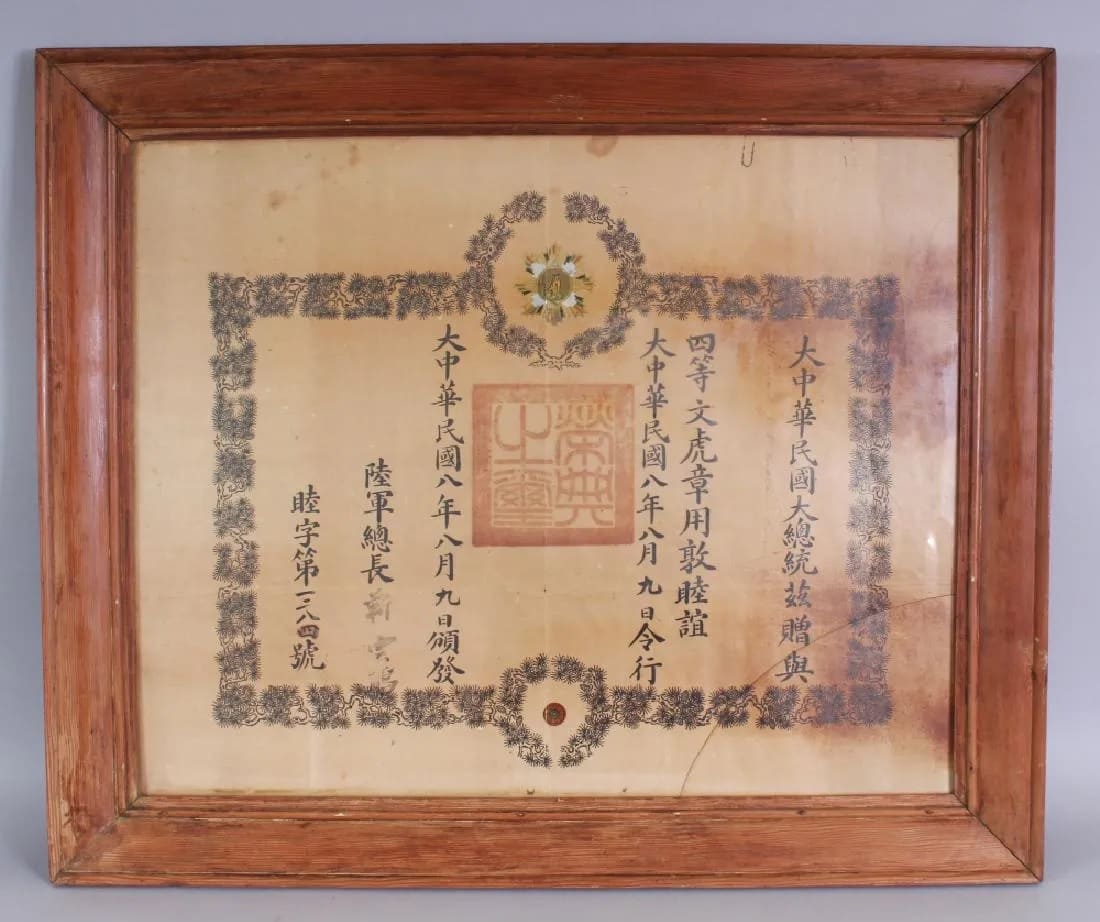 大中華民國大總統茲贈與
四等文虎章用敦睦誼
大中華民國八年八月九日令行
榮典之璽
大中華民國八年八月九日頒發
陸軍總長靳雲鵬
睦字第一二八四號